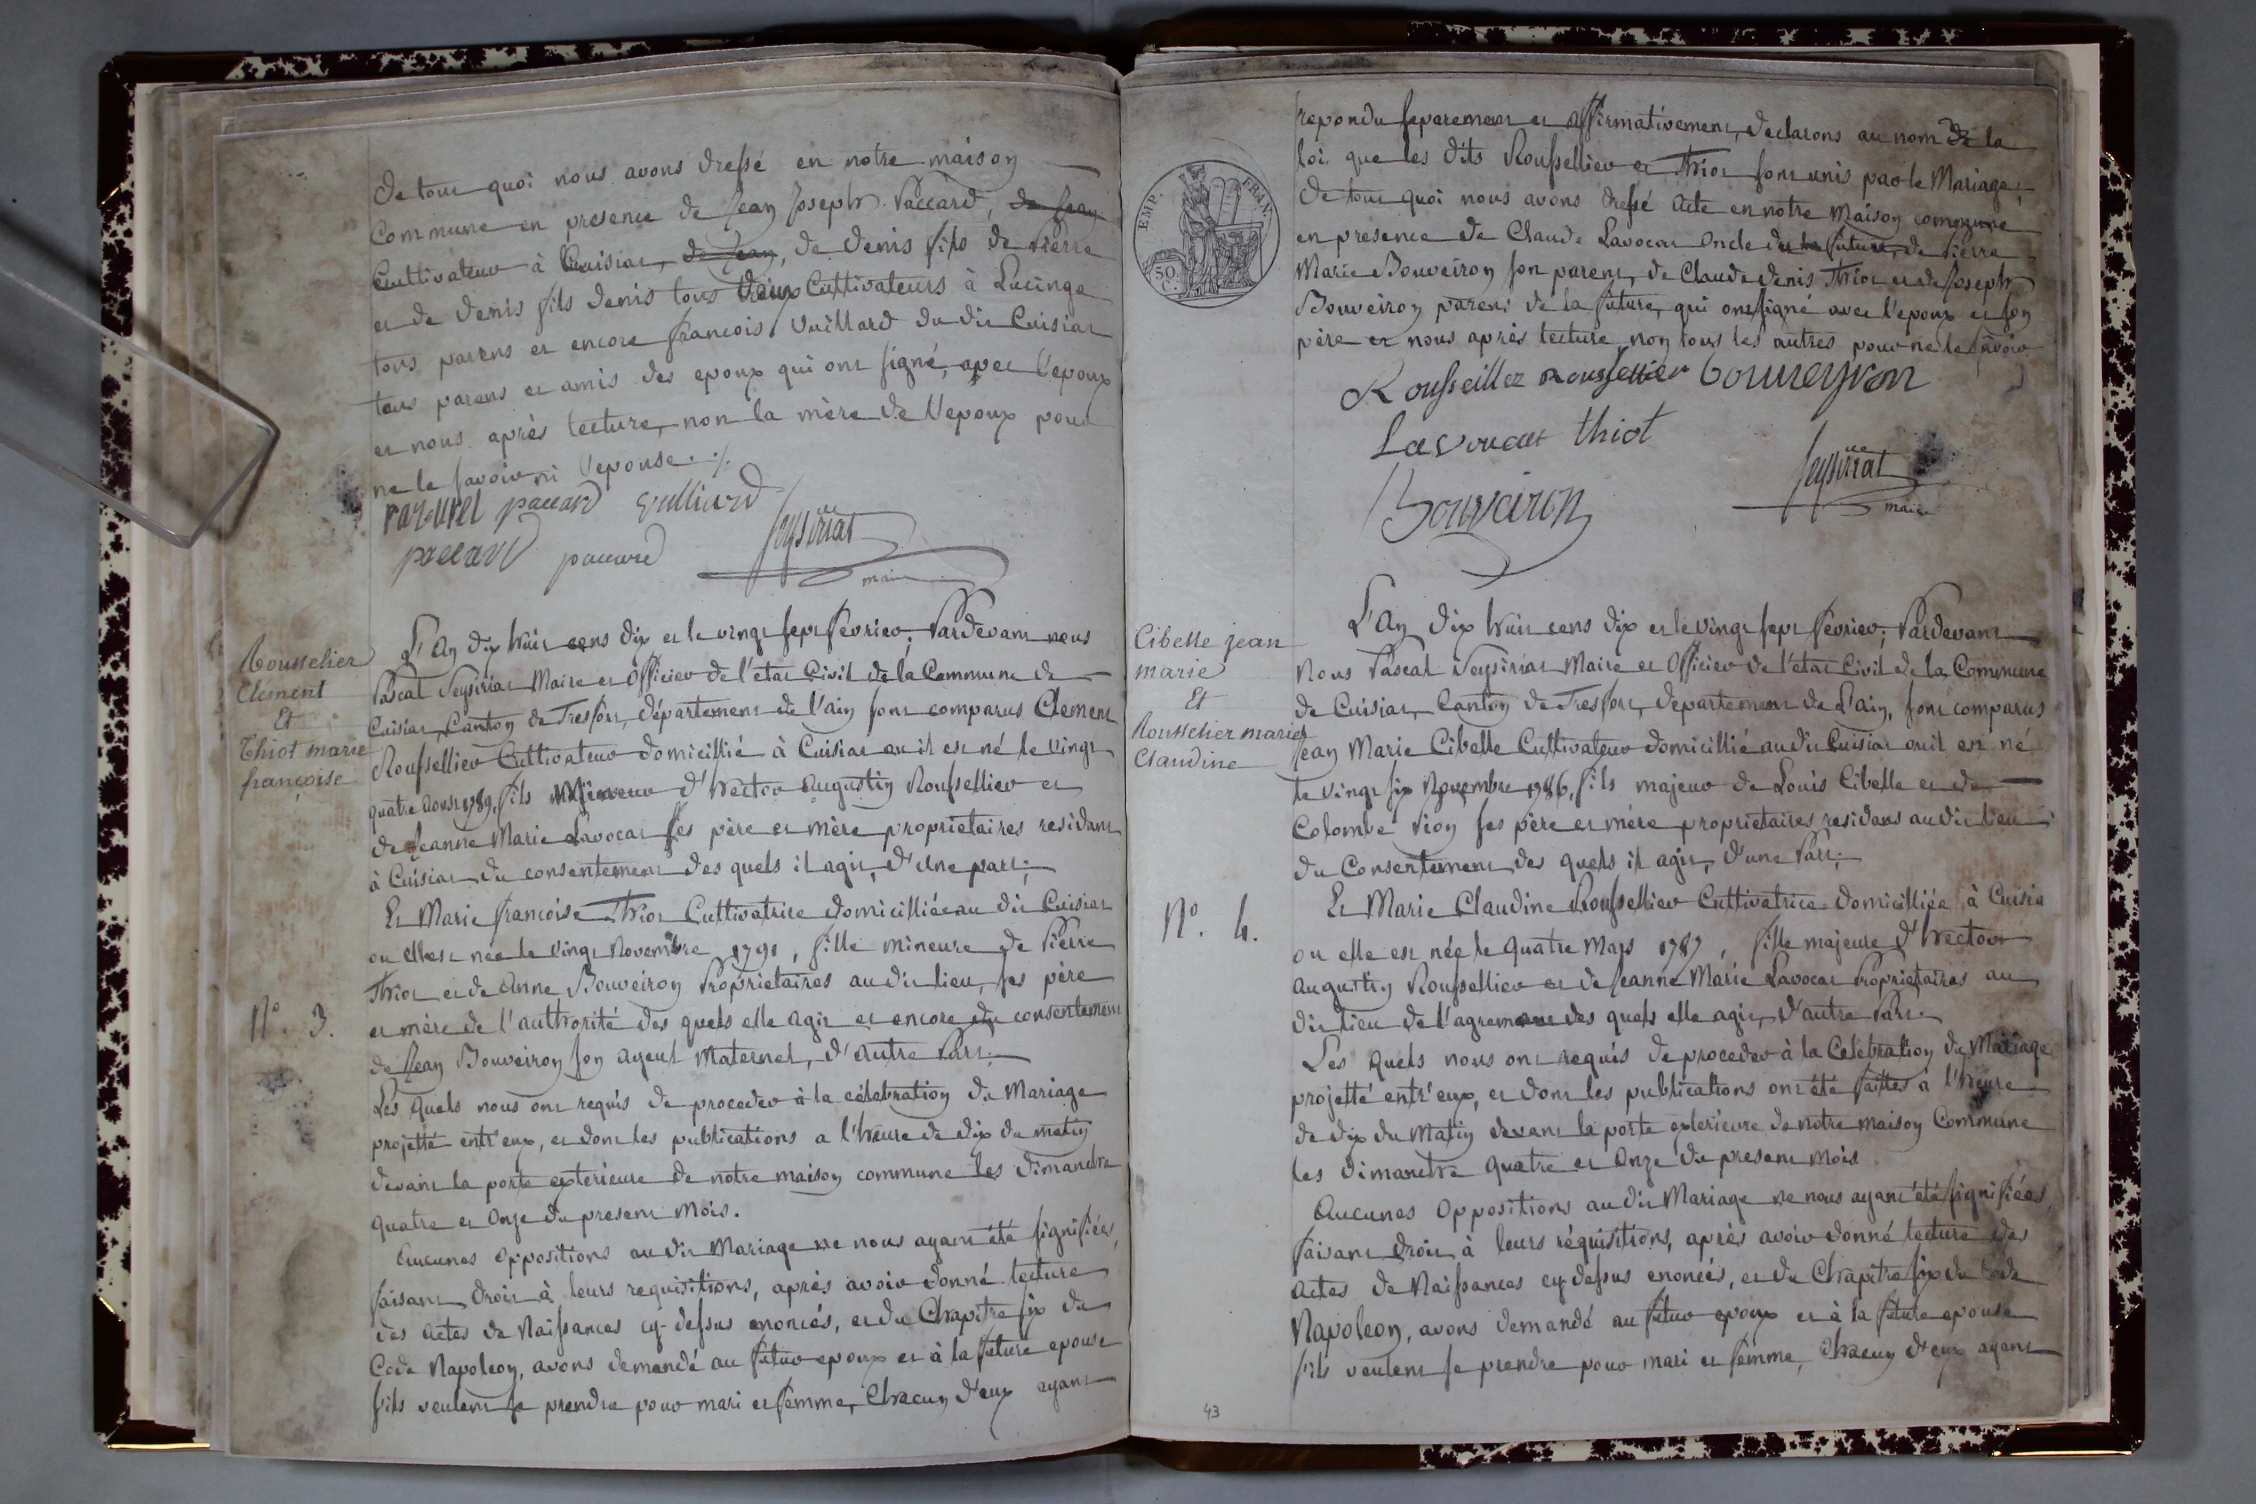 De tout quoi nous avons dressé en notre maison
Commune en presence de Jean Joseph Paccard, de Jean
Cultivateur à Cuisiat, de Jean, de Denis fils de Pierre
et de Denis fils Denis tous deux Cultivateurs à Lucinge
tous parens et encore francois Vuillard du dit Cuisiat
tous parens et amis des epoux qui ont signé, avec l'epoux
et nous après lecture, non la mère de l'epoux pour
ne le savoir ni l'epouse ./.
paccard vulliard
paccard paccard Seysiriat
maire
Rousselier
Clément
Et
Thiot marie
françoise
L'An dix huit cens dix et le vingt sept fevrier, Pardevant nous
Pascal Seysiriat Maire et Officier de l'etat Civil de la Commune de
Cuisiat, Canton de Treffort, département de l'ain sont comparus Clement
Rousselier Cultivateur domicillié à Cuisiat ou il est né le vingt
quatre Aoust 1789, fils d'hector Augustin Rousselier et
de Jeanne Marie Lavocat ses père et mère proprietaires residant
à Cuisiat du consentement des quels il agit, d'une part;
Et Marie françoise Thiot Cultivatrice domicilliée au dit Cuisiat
ou elle est née le vingt Novembre 1791, fille mineure de Pierre
Thiot et de Anne Bouveiron Proprietaires au dit lieu, ses père
et mère de l'authorité des quels elle agit et encore du consentement
de Jean Bouveiron son ayeul Maternel, d'autre Part.
N°. 3.
Les quels nous ont requis de proceder à la célebration du Mariage
projetté entr'eux, et dont les publications a l'heure de dix du matin
devant la porte exterieure de notre maison commune les dimanche
quatre et onze du present Mois.
Aucunes oppositions au dit Mariage ne nous ayant été signifiées,
faisant droit à leurs requisitions, après avoir donné lecture
des actes de Naissances cy-dessus enoncés, et du Chapitre six du
Code Napoleon, avons demandé au futur epoux et à la future epouse
s'ils veulent se prendre pour mari et femme, Chacun d'eux ayant
EMP. FRAN.
50.
C.
repondu separement et affirmativement, declarons au nom de la
loi que les dits Roussellier et Thiot sont unis par le Mariage;
De tout quoi nous avons dressé acte en notre maison commune
en presence de Claude Lavocat Oncle de la future, de Pierre
Marie Bouveiron son parent, de Claude Denis Thiot et de Joseph
Bouveiron parens de la future, qui ont signé avec l'epoux et son
père et nous après lecture, non tous les autres pour ne le savoir
Rousseillez Rousselier bouveyron
Lavocat thiot
Bouveiron Seysiriat
maire
Cibelle jean
marie
Et
Rousselier marie
Claudine
L'An dix huit cens dix et le vingt sept fevrier, Pardevant
Nous Pascal Seysiriat Maire et Officier de l'etat Civil de la Commune
de Cuisiat, Canton de Treffort, departement de l'ain, sont comparus
Jean Marie Cibelle Cultivateur domicillié au dit Cuisiat ou il est né
le vingt six Novembre 1786, fils majeur de Louis Cibelle et de
Colombe Pion ses père et mère proprietaires residans au dit lieu
du Consentement des quels il agit, d'une Part;
Et Marie Claudine Roussellier Cultivatrice domicilliée à Cuisia
ou elle est née le quatre Mars 1787, fille majeure d'hector
Augustin Roussellier et de Jeanne Marie Lavocat Proprietaires au
dit lieu de l'agrement des quels elle agit, d'autre Part.
N°. 4.
Les quels nous ont requis de proceder à la Celebration du Mariage
projetté entr'eux, et dont les publications ont été faittes à l'heure
de dix du Matin devant la porte exterieure de notre maison Commune
les dimanche quatre et Onze du present mois
Aucunes Oppositions au dit Mariage ne nous ayant été signifiées
faisant droit à leurs réquisitions, après avoir donné lecture des
actes de Naissances cy dessus enoncés, et du Chapitre six du Code
Napoleon, avons demandé au futur epoux et à la future epouse
s'ils veulent se prendre pour mari et femme, Chacun d'eux ayant
43